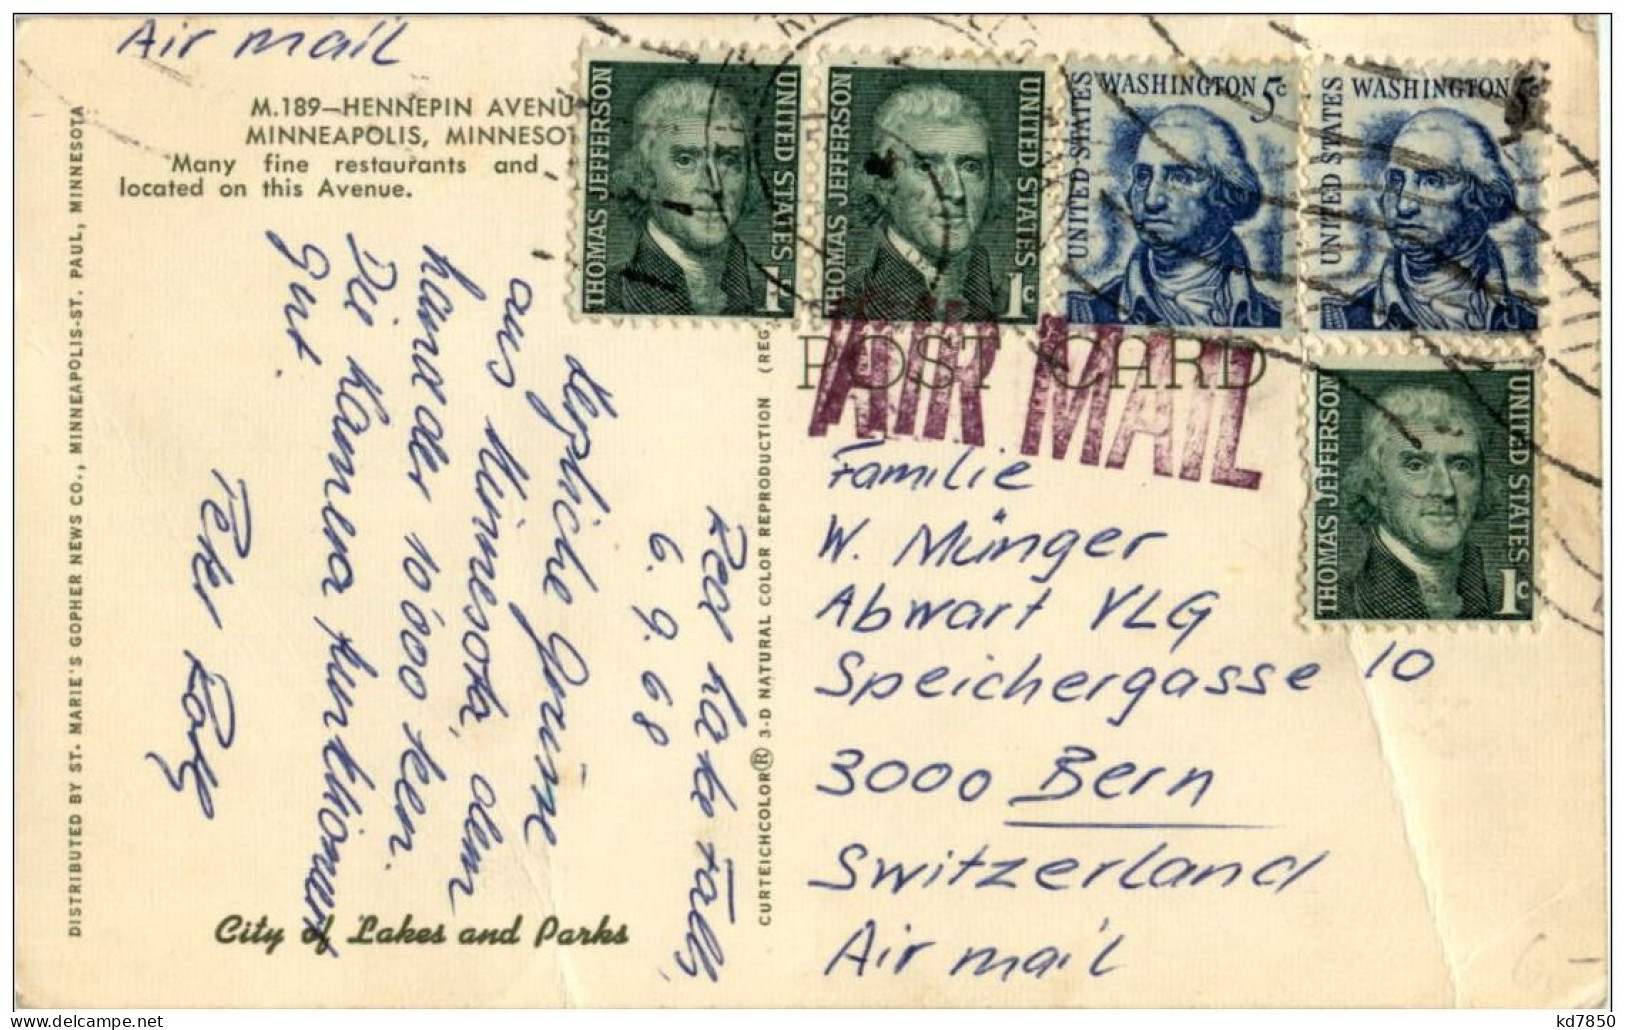 Air mail
M.189—HENNEPIN AVENU
MINNEAPOLIS, MINNESOT
Many fine restaurants and
located on this Avenue.
DISTRIBUTED BY ST. MARIE'S GOPHER NEWS CO., MINNEAPOLIS-ST. PAUL, MINNESOTA
Red Lake Falls,
6. 9. 68
Herzliche Grüsse
aus Minnesota, dem
Land der 10'000 Seen.
Die Kamera funktioniert
gut.
City of Lakes and Parks
CURTEICHCOLOR® 3-D NATURAL COLOR REPRODUCTION (REG.
THOMAS JEFFERSON
UNITED STATES
1c
THOMAS JEFFERSON
UNITED STATES
1c
UNITED STATES
WASHINGTON 5c
UNITED STATES
WASHINGTON 5c
THOMAS JEFFERSON
UNITED STATES
1c
POST CARD
AIR MAIL
Familie
W. Münger
Abwart VLG
Speichergasse 10
3000 Bern
Switzerland
Air mail
kd7850